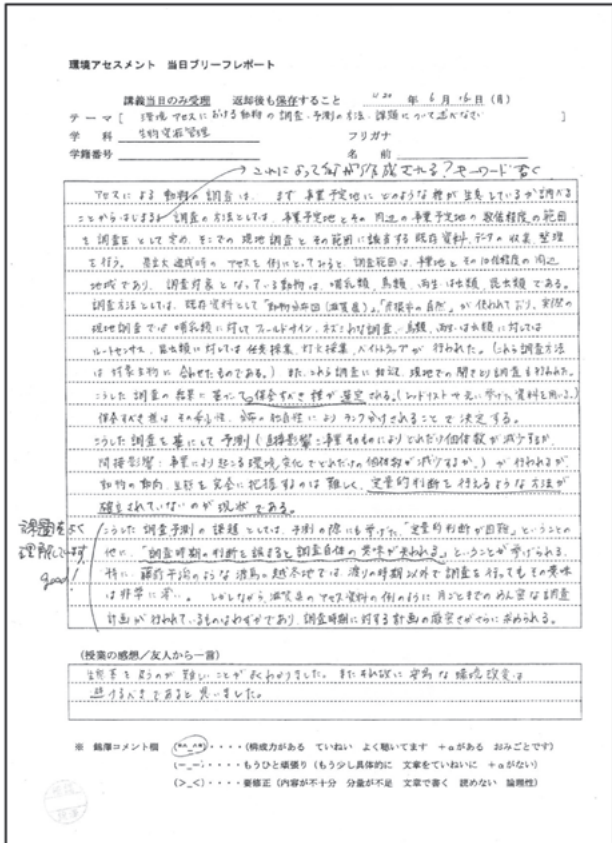 環境アセスメント 当日ブリーフレポート
講義当日のみ受理 返却後も保存すること 年 6 月 16 日 (月)
テーマ [ 環境アセスにおける動物の調査・予測の方法、課題について述べなさい ]
学 科 生物資源管理 フリガナ
学籍番号 名 前
→ これによって何が作成される?キーワード書く
アセスによる動物の調査は、まず事業予定地にどのような種が生息しているか調べる
ことからはじまる。調査の方法としては、事業予定地とその周辺の事業予定地の数倍程度の範囲
を調査区として定め、そこでの現地調査とその範囲に該当する既存資料、データの収集、整理
を行う。 アセスを例にとってみると、調査範囲は、事業地とその10倍程度の周辺
地域であり、調査対象となっている動物は、哺乳類、鳥類、両生・は虫類、昆虫類である。
調査方法としては、既存資料として「動物分布図(滋賀県)」、 の自然」が使われており、実際の
現地調査では哺乳類に対してフィールドサイン、 調査、鳥類、両生・は虫類に対しては
ルートセンサス、昆虫類に対しては任意採集、灯火採集、ベイトトラップが行われた。(これら調査方法
は対象生物に合わせたものである。) また、これら調査に 、現地での聞きとり調査も行われた。
こうした調査の結果に基づいて保全すべき種が選定される。(レッドリストや先に挙げた資料を用いる。)
保全すべき種はその希少性、 の独自性によりランク分けされることで決定する。
こうした調査を基にして予測(直接影響:事業そのものによりどれだけ個体数が減少するか、
間接影響:事業により起こる環境変化でどれだけの個体数が減少するか、)が行われるが、
動物の動向、生態を完全に把握するのは難しく、定量的判断を行えるような方法が
確立されていないのが現状である。
こうした調査予測の課題としては、予測の際にも挙げた、「定量的判断が困難」ということの
他に、「調査時期の判断を誤ると調査自体の意味が失われる。」ということが挙げられる。
特に、藤前干潟のような渡鳥の越冬地では、渡りの時期以外で調査を行ってもその意味
は非常に薄い。しかしながら、滋賀県のアセス資料の例のように月ごとまでのめん密な調査
計画が行われているものはわずかであり、調査時期に対する計画の厳密さがさらに求められる。
課題をよく
理解しています
good!
(授業の感想/友人から一言)
生態系を 難しいことがよくわかりました。またそれ故に安易な環境改変は
避けるべきであると思いました。
※ 錦澤コメント欄 (*^_^*)・・・・(構成力がある ていねい よく聴いてます +αがある おみごとです)
(ー_ー;・・・・もうひと頑張り (もう少し具体的に 文章をていねいに +αがない)
(>_<)・・・・要修正 (内容が不十分 分量が不足 文章で書く 読めない 論理性)